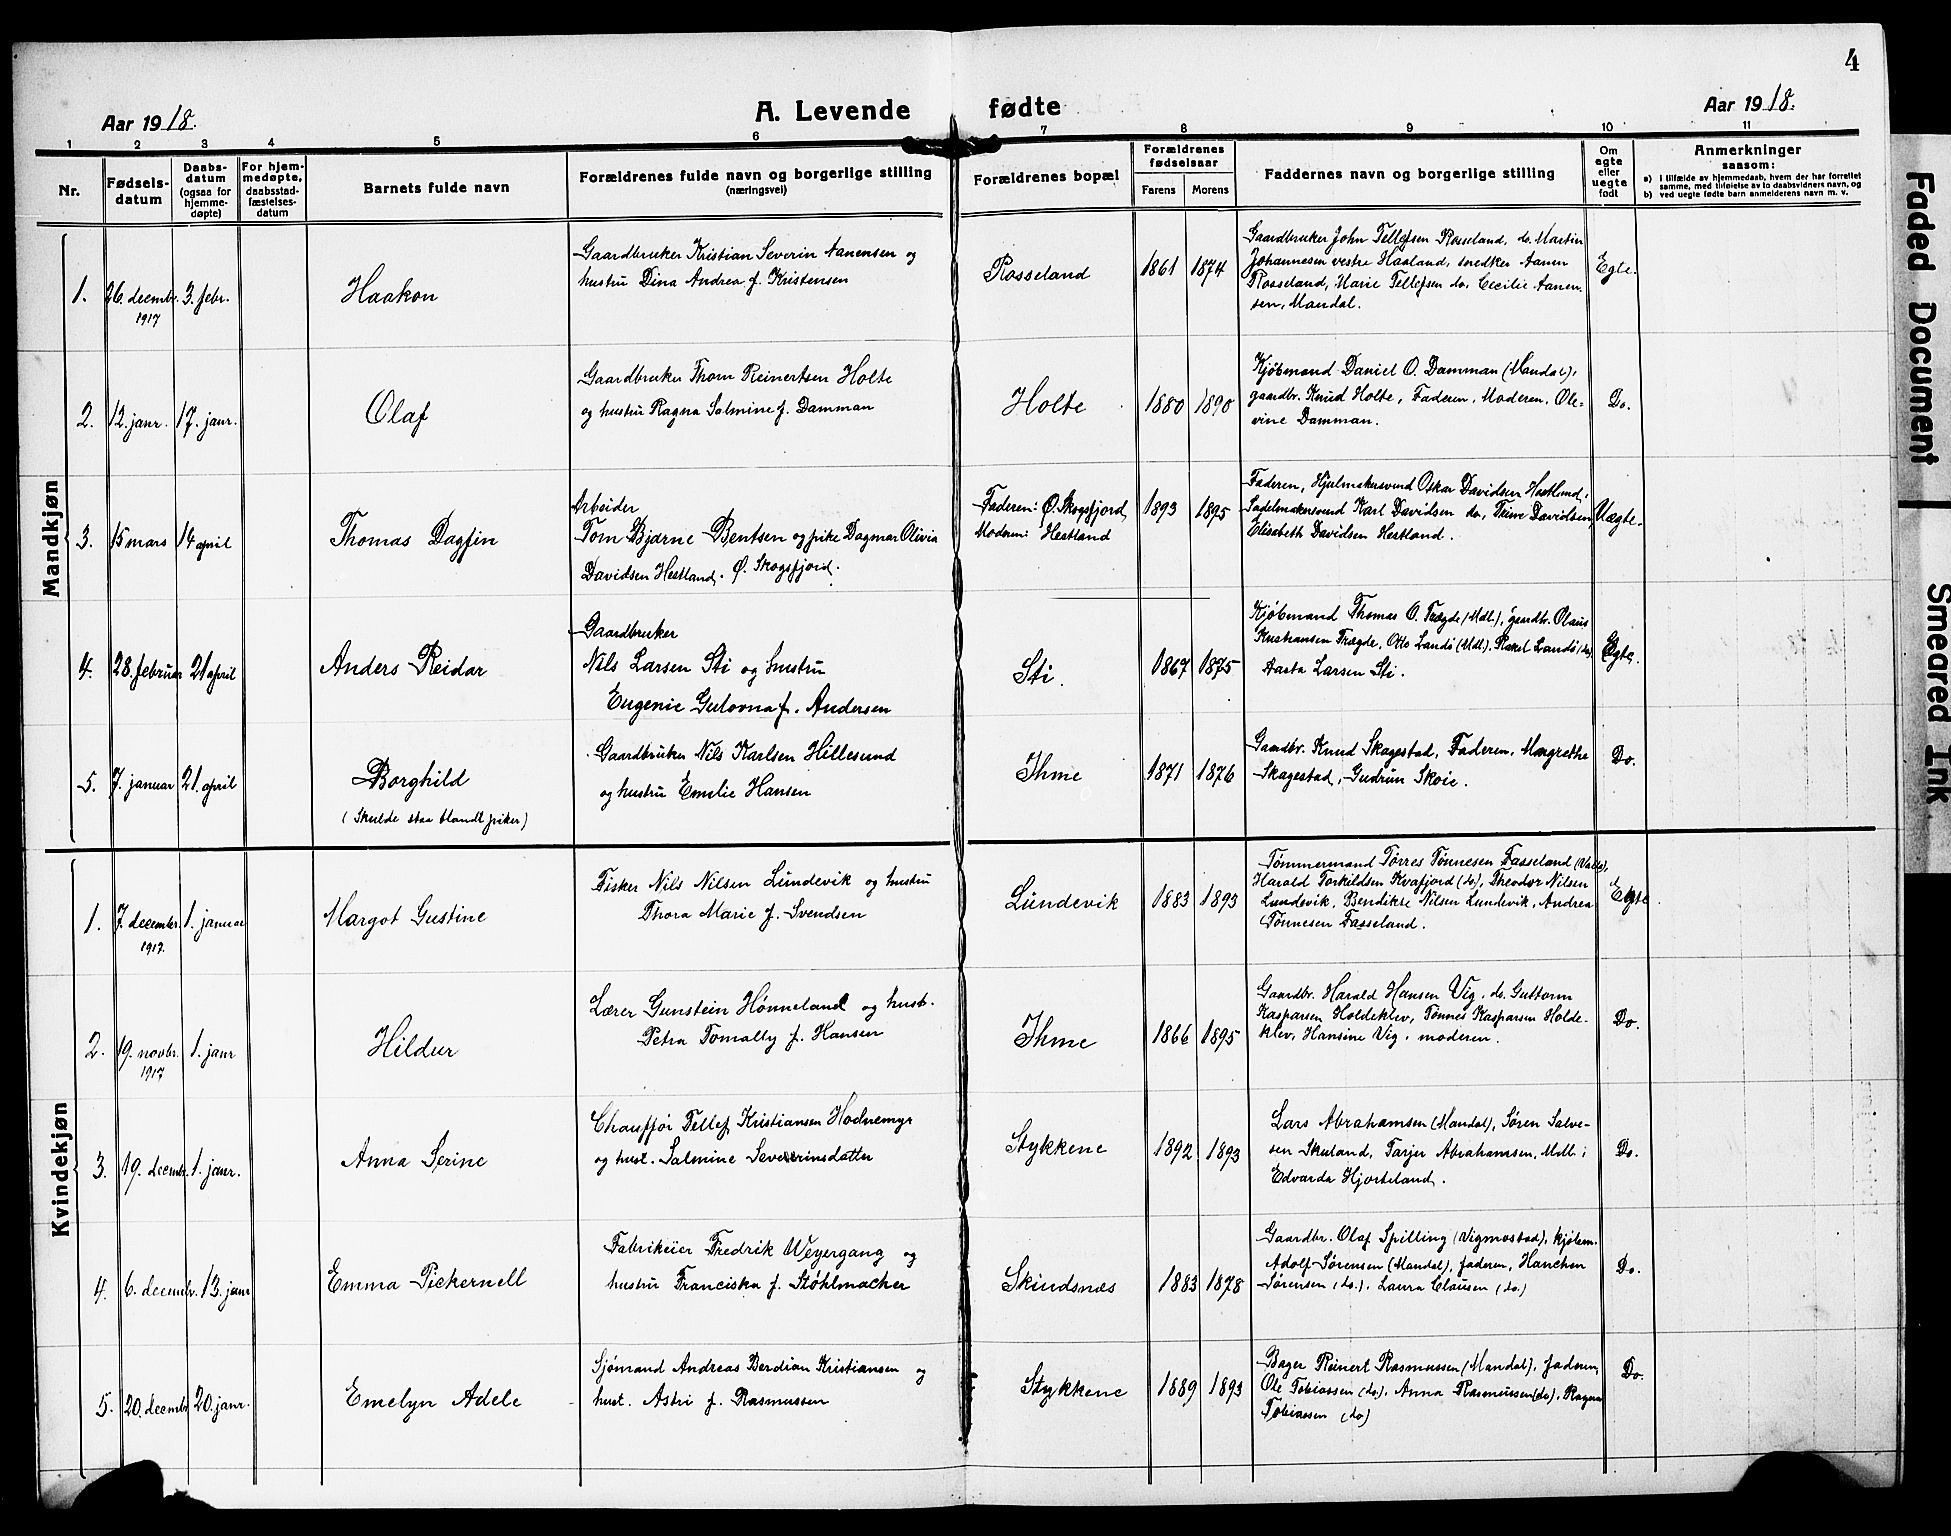 4
Aar 1918.
A. Levende fødte
Aar 1918.
1 2 3 4 5 6 7 8 9 10 11
Nr.
Fødsels-
datum
Daabs-
datum
(ogsaa for
hjemme-
døpte)
For hjem-
medøpte,
daabsstad-
fæstelses-
datum
Barnets fulde navn
Forældrenes fulde navn og borgerlige stilling
(næringsvei)
Forældrenes bopæl
Forældrenes
fødselsaar
Farens Morens
Faddernes navn og borgerlige stilling
Om
egte
eller
uegte
født
Anmerkninger
saasom:
a) i tilfælde av hjemmedaab, hvem der har forrettet
samme, med tilføielse av to daabsvidners navn, og
b) ved uegte fødte barn anmelderens navn m. v.
Mandkjøn
1.
26. decembr.
1917
3. febr.
Haakon
Gaardbruker Kristian Severin Aanensen og
hustru Dina Andrea f. Kristensen
Rosseland
1861 1874
Gaardbruker John Tellefsen Rosseland, do. Martin
Johannesen vestre Haaland, snedker Aanen
Rosseland, Marie Tellefsen do, Cecilie Aanen-
sen, Mandal.
Egte.
2.
12. janr.
17. janr.
Olaf
Gaardbruker Thom Reinertsen Holte
og hustru Ragna Salmine f. Damman
Holte
1880 1890
Kjøbmand Daniel O. Damman (Mandal),
gaardbr. Knud Holte, Faderen, Moderen, Ole-
vine Damman.
Do.
3.
15 mars
14 april
Thomas Dagfin
Arbeider
Tom Bjarne Bentsen og pike Dagmar Olivia
Davidsen Hestland. Ø. Skogsfjord.
Faderen: Ø. Skogsfjord
Moderen: Hestland
1893 1895
Faderen, Hjulmakersvend Oskar Davidsen Hestland,
Sadelmakersvend Karl Davidsen do, Trine Davidsen,
Elisabeth Davidsen Hestland.
Uægte.
4.
28. februar
21 april
Anders Reidar
Gaardbruker
Nils Larsen Sti og hustru
Eugenie Gulovna f. Andersen
Sti.
1867 1875
Kjøbmand Thomas O. Trægde (Mdl), gaardbr. Olaus
Kristiansen Trægde, Otto Landö (Mdl). Rakel Landö (do)
Aasta Larsen Sti.
Egte.
5.
7. januar
21. april
Borghild
(Skulde staa blandt piker)
Gaardbruker Nils Karlsen Hillesund
og hustru Emelie Hansen
Ihme
1871 1876
Gaardbr. Knud Skagestad, Faderen, Margrethe
Skagestad, Gudrun Skoie.
Do.
Kvindekjøn
1.
7. decembr.
1917.
1. januar
Margot Gustine
Fisker Nils Nilsen Lundevik og hustru
Thora Marie f. Svendsen
Lundevik
1883 1893
Tømmermand Tørres Tønnesen Fasseland (Valle),
Harald Torkildsen Kvafjord (do), Theodor Nilsen
Lundevik, Bendikte Nilsen Lundevik, Andrea
Tønnesen Fasseland.
Egte
2.
19. novbr.
1917
1. janr
Hildur
Lærer Gunstein Hønneland og hust.
Petra Tomally f. Hansen
Ihme
1866 1895
Gaardbr. Harald Hansen Vig, do. Guttorm
Kaspersen Holdeklev, Tønnes Kaspersen Holde-
klev, Hansine Vig, moderen.
Do.
3.
19. decembr.
1. janr.
Anna Serine
Chauffør Tellef Kristiansen Hodnemyr
og hust. Salmine Severinsdatter
Stykkene
1892 1893
Lars Abrahamsen (Mandal), Søren Salve-
sen Skuland, Tarjer Abrahamsen, Mdl.;
Edvarda Hjorteland.
Do.
4.
6. decembr.
13. janr
Emma Pickernell
Fabrikeier Fredrik Weyergang og
hustru Franciska f. Støhlmacher
Skindsnes
1883 1878
Gaardbr. Olaf Spilling (Vigmostad), kjøbm.
Adolf Sørensen (Mandal), faderen, Hanchen
Sørensen (do.), Laura Clausen (do.)
Do.
5.
20. decembr
20. janr.
Emelyn Adele
Sjømand Andreas Berdian Kristiansen og
hust. Astri f. Rasmussen
Stykkene
1889 1893
Bager Reinert Rasmussen (Mandal), faderen,
Ole Tobiassen (do), Anna Rasmussen (do), Ragna
Tobiassen (do)
Do.
Faded Document
Smeared Ink